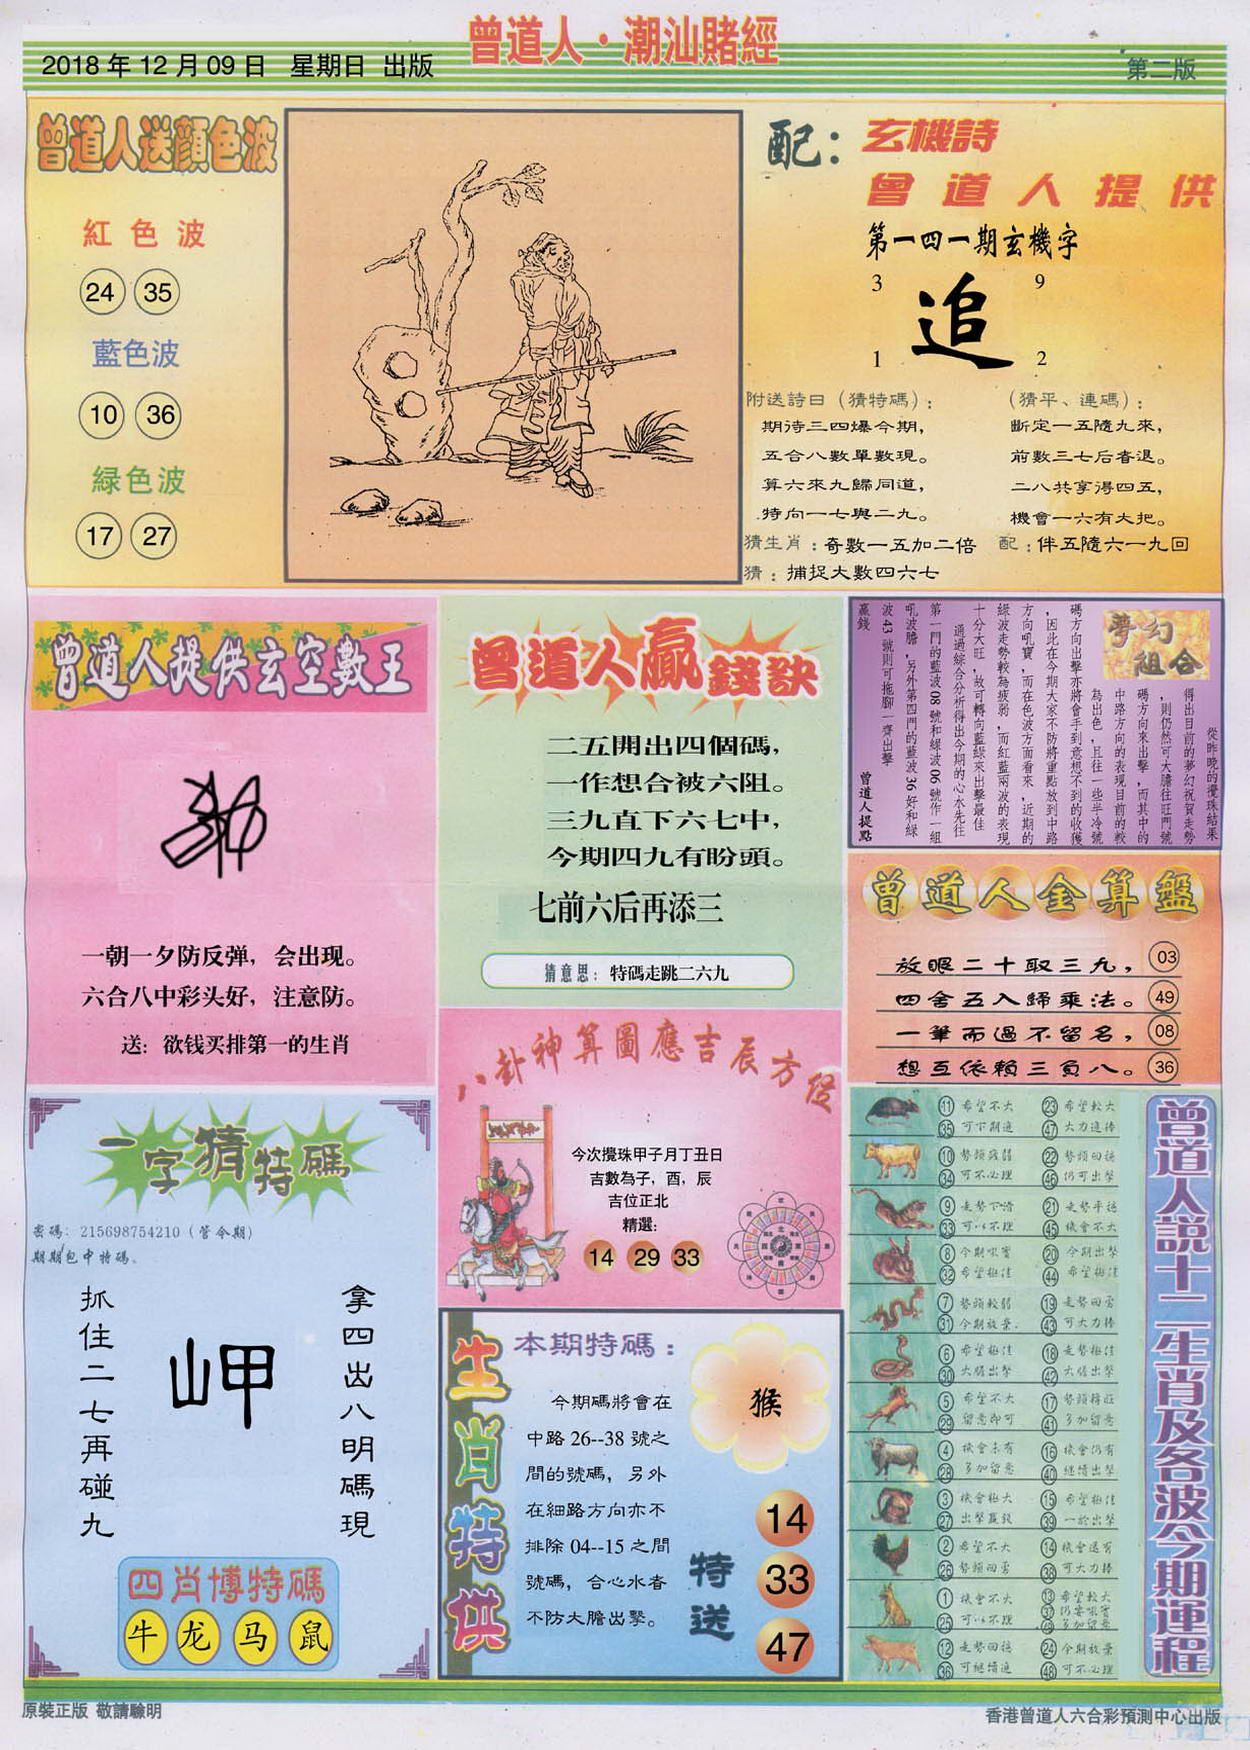 曾道人·潮汕賭經
2018年12月09日 星期日 出版
第二版
曾道人送顔色波
紅色波
24 35
藍色波
10 36
緑色波
17 27
配：玄機詩
曾道人提供
第一四一期玄機字
3 9
追
1 2
附送詩曰（猜特碼）：
期待三四爆今期，
五合八數單數現。
算六來九歸同道，
特向一七與二九。
（猜平、連碼）：
斷定一五隨九來，
前數三七后者退。
二八共享得四五，
機會一六有大把。
猜生肖：奇數一五加二倍 配：伴五隨六一九回
猜：捕捉大數四六七
曾道人提供玄空數王
一朝一夕防反弹，会出现。
六合八中彩头好，注意防。
送：欲钱买排第一的生肖
曾道人贏錢訣
二五開出四個碼，
一作想合被六阻。
三九直下六七中，
今期四九有盼頭。
七前六后再添三
猜意思：特碼走跳二六九
夢幻組合
從昨晚的攪珠結果
得出目前的夢幻祝賀走勢
，則仍然可大膽往旺門號
碼方向來出擊，而其中的
中路方向的表現目前的較
為出色，且往一些半冷號
碼方向出擊亦將會手到意想不到的收獲
，因此在今期大家不防將重點放到中路
方向吼寶，而在色波方面看來，近期的
綠波走勢較為疲弱，而紅藍兩波的表現
十分大旺，故可轉向藍綠來出擊最佳
通過綜合分析得出今期的心水先往
第一門的藍波08號和綠波06號作一組
吼波膽，另外第四門的藍波36好和綠
波43號則可拖腳一齊出擊
贏錢 曾道人提點
曾道人金算盤
放眼二十取三九， 03
四舍五入歸乘法。 49
一筆而過不留名， 08
想互依賴三負八。 36
八卦神算圖應吉辰方位
今次攪珠甲子月丁丑日
吉數為子，酉，辰
吉位正北
精選：
14 29 33
一字猜特碼
密碼：215698754210（管令期）
期期包中特碼。
拿四出八明碼現
岬
抓住二七再碰九
四肖博特碼
牛 龙 马 鼠
生肖特供
本期特碼：
猴
今期碼將會在
中路26--38號之
間的號碼，另外
在細路方向亦不
排除04--15之間
號碼，合心水者
不防大膽出擊。
特送
14
33
47
曾道人説十二生肖及各波今期運程
11 希望不大 23 希望較大
35 可下期追 47 大力追捧
10 勢頭疲弱 22 勢頭回穩
34 可不必理 46 仍可出擊
9 走勢下滑 21 走勢平穩
33 可以不理 45 機會不大
8 今期吼寶 20 今期出擊
32 希望極佳 44 希望極佳
7 勢頭較弱 19 走勢回雲
31 今期放棄. 43 可大力捧
6 希望極佳 18 走勢極佳
30 大膽出擊 42 大膽出擊
5 希望不大 17 勢頭轉旺
29 留意即可 41 多加留意
4 機會未有 16 機會仍有
28 多加留意 40 繼續出擊
3 機會極大 15 希望極佳
27 出擊贏錢 39 一於出擊
2 希望不大 14 機會還有
26 勢頭回雲 38 可大力捧
1 機會不大 13 希望較大
25 可以不理 37 仍要吼寶
49 多加留意
12 走勢回穩 24 今期放棄
36 可繼續追 48 可不必理
原裝正版 敬請驗明
香港曾道人六合彩預測中心出版